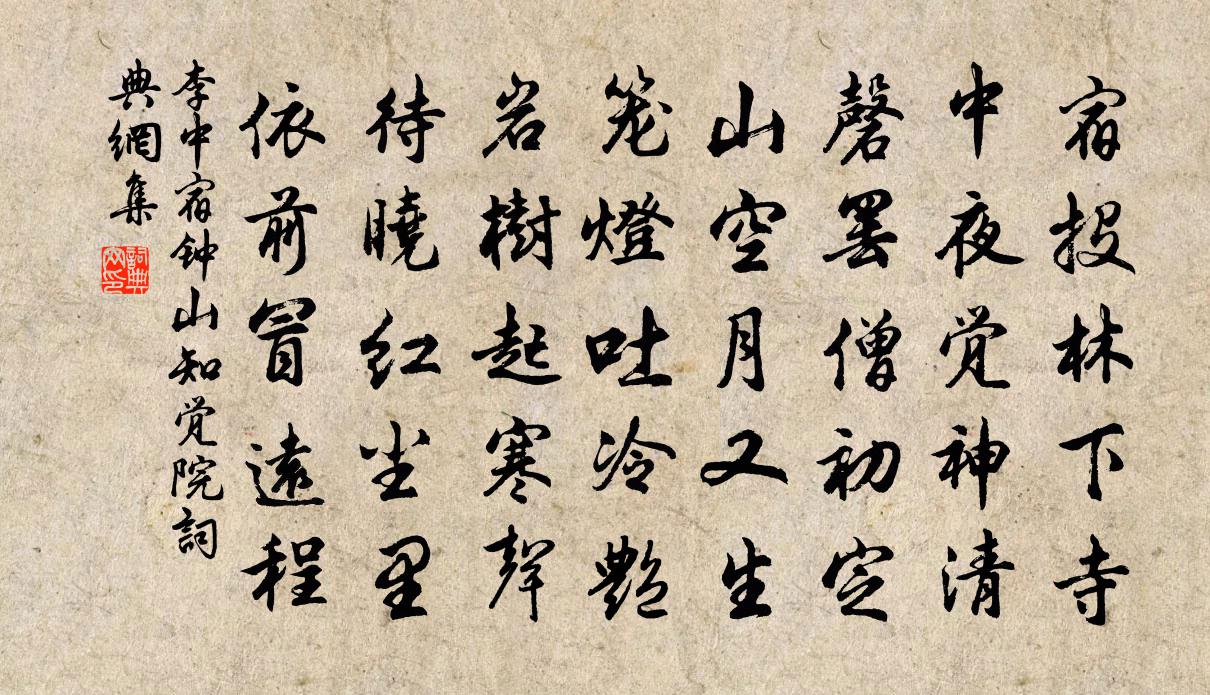 宿投林下寺
中夜觉神清
磬罢僧初定
山空月又生
笼灯吐冷艳
岩树起寒声
待晓红尘里
依前冒远程
李中宿钟山知觉院词
典网集
词典